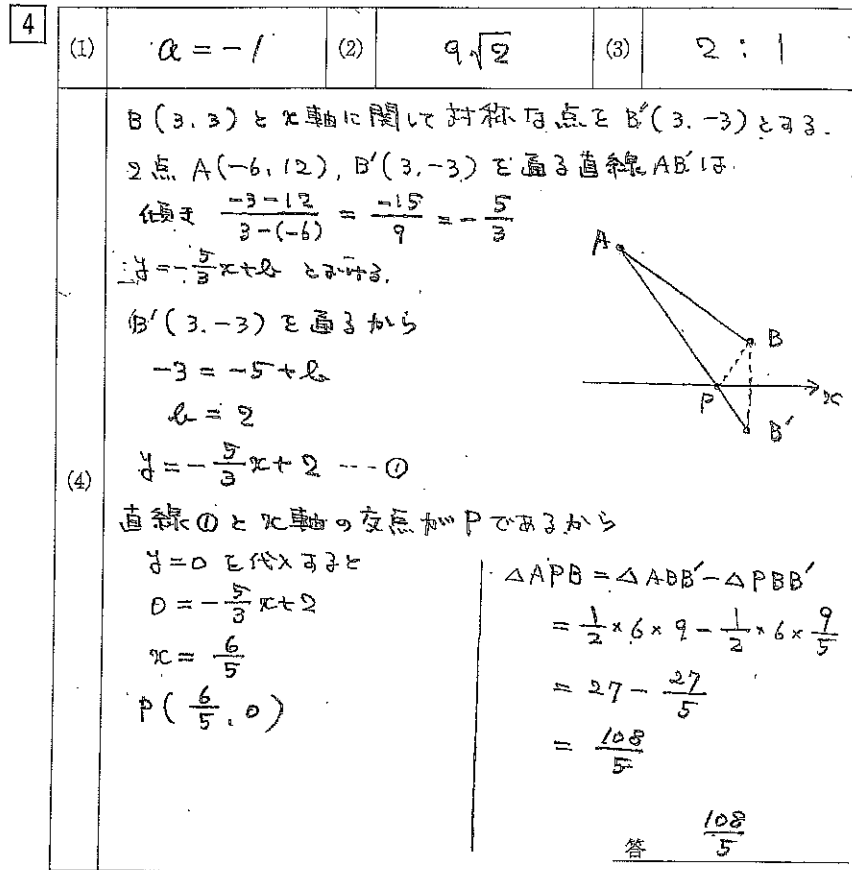 4
(1) a = -1 (2) 9√2 (3) 2 : 1
(4)
B(3, 3) と x軸に関して対称な点を B′(3, -3) とする.
2点 A(-6, 12), B′(3, -3) を通る直線AB′は
傾き \frac{-3-12}{3-(-6)} = \frac{-15}{9} = -\frac{5}{3}
∴ y = -\frac{5}{3}x + b とおける.
B′(3, -3) を通るから
-3 = -5 + b
b = 2
y = -\frac{5}{3}x + 2 ---- ①
直線①とx軸の交点がPであるから
y=0 を代入すると
0 = -\frac{5}{3}x + 2
x = \frac{6}{5}
P(\frac{6}{5}, 0)
A
B
P
x
B′
△APB = △ABB′ - △PBB′
= \frac{1}{2} × 6 × 9 - \frac{1}{2} × 6 × \frac{9}{5}
= 27 - \frac{27}{5}
= \frac{108}{5}
答 \frac{108}{5}